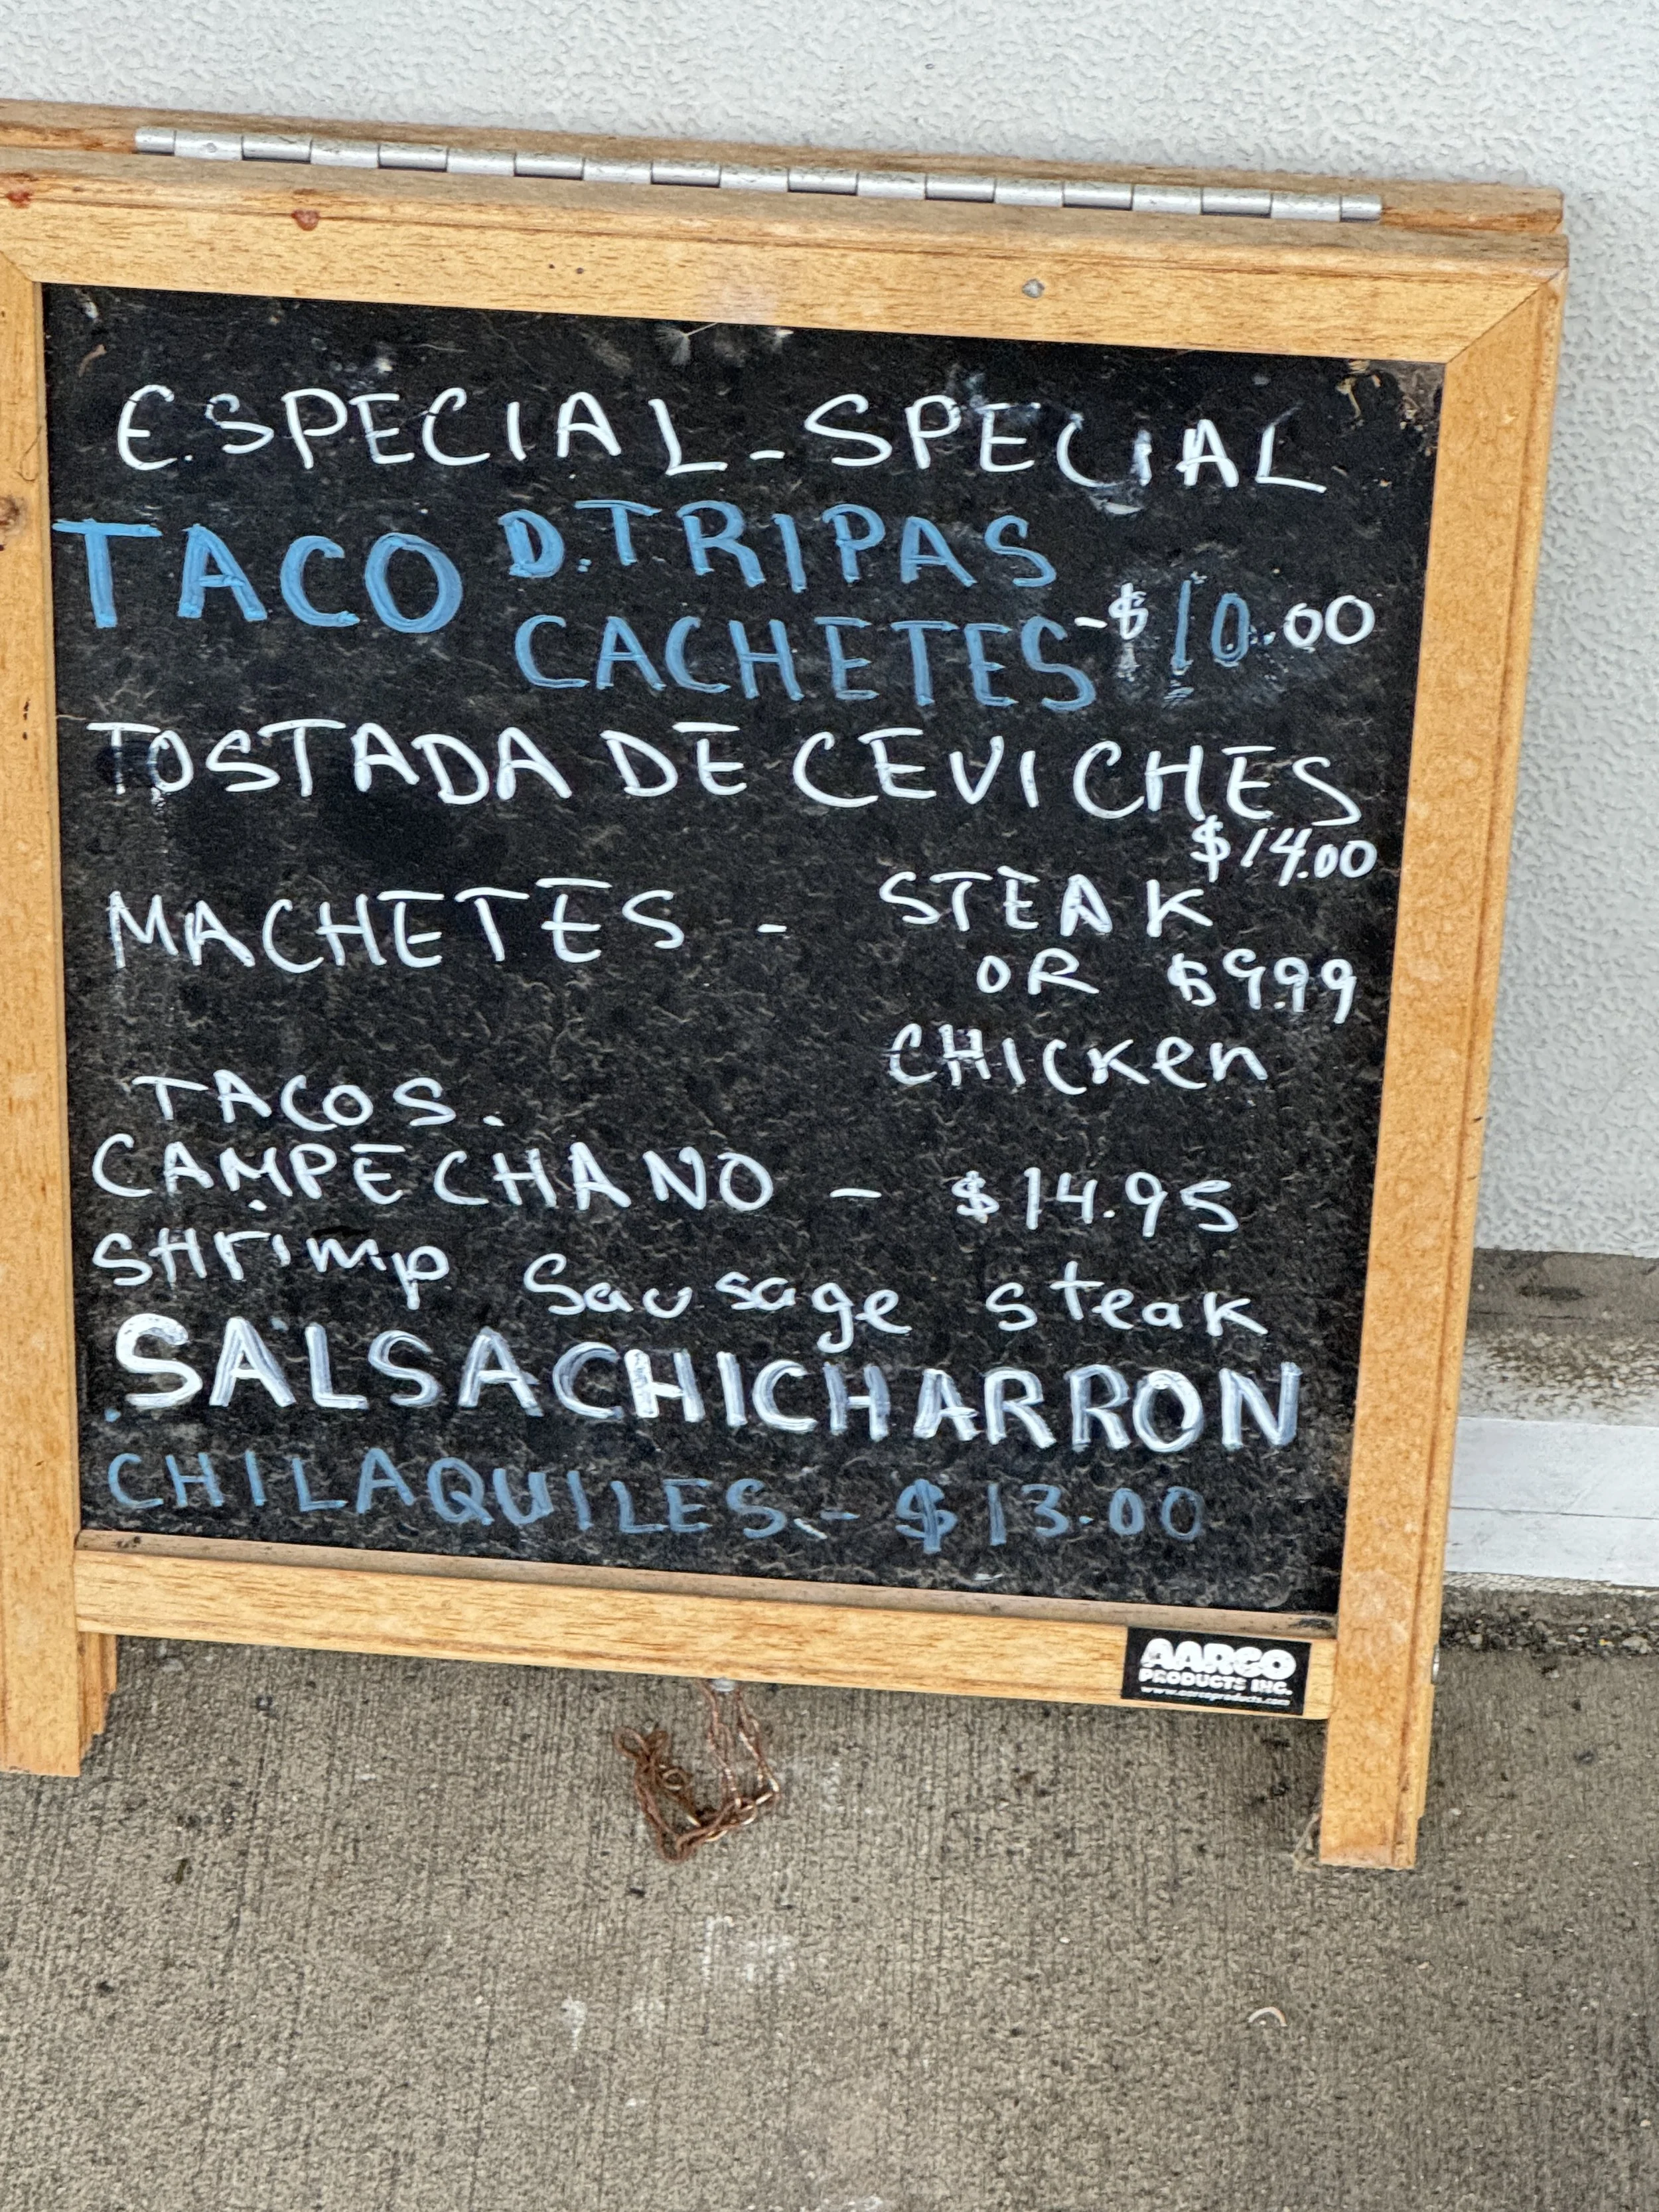 ESPECIAL - SPECIAL
TACO D. TRIPAS
CACHETES - $10.00
TOSTADA DE CEVICHES
$14.00
MACHETES - STEAK
OR $9.99
CHICKen
TACOS.
CAMPECHANO - $14.95
SHrimp Sausage steak
SALSACHICHARRON
CHILAQUILES. - $13.00
AARCO
PRODUCTS INC.
www.aarcoproducts.com